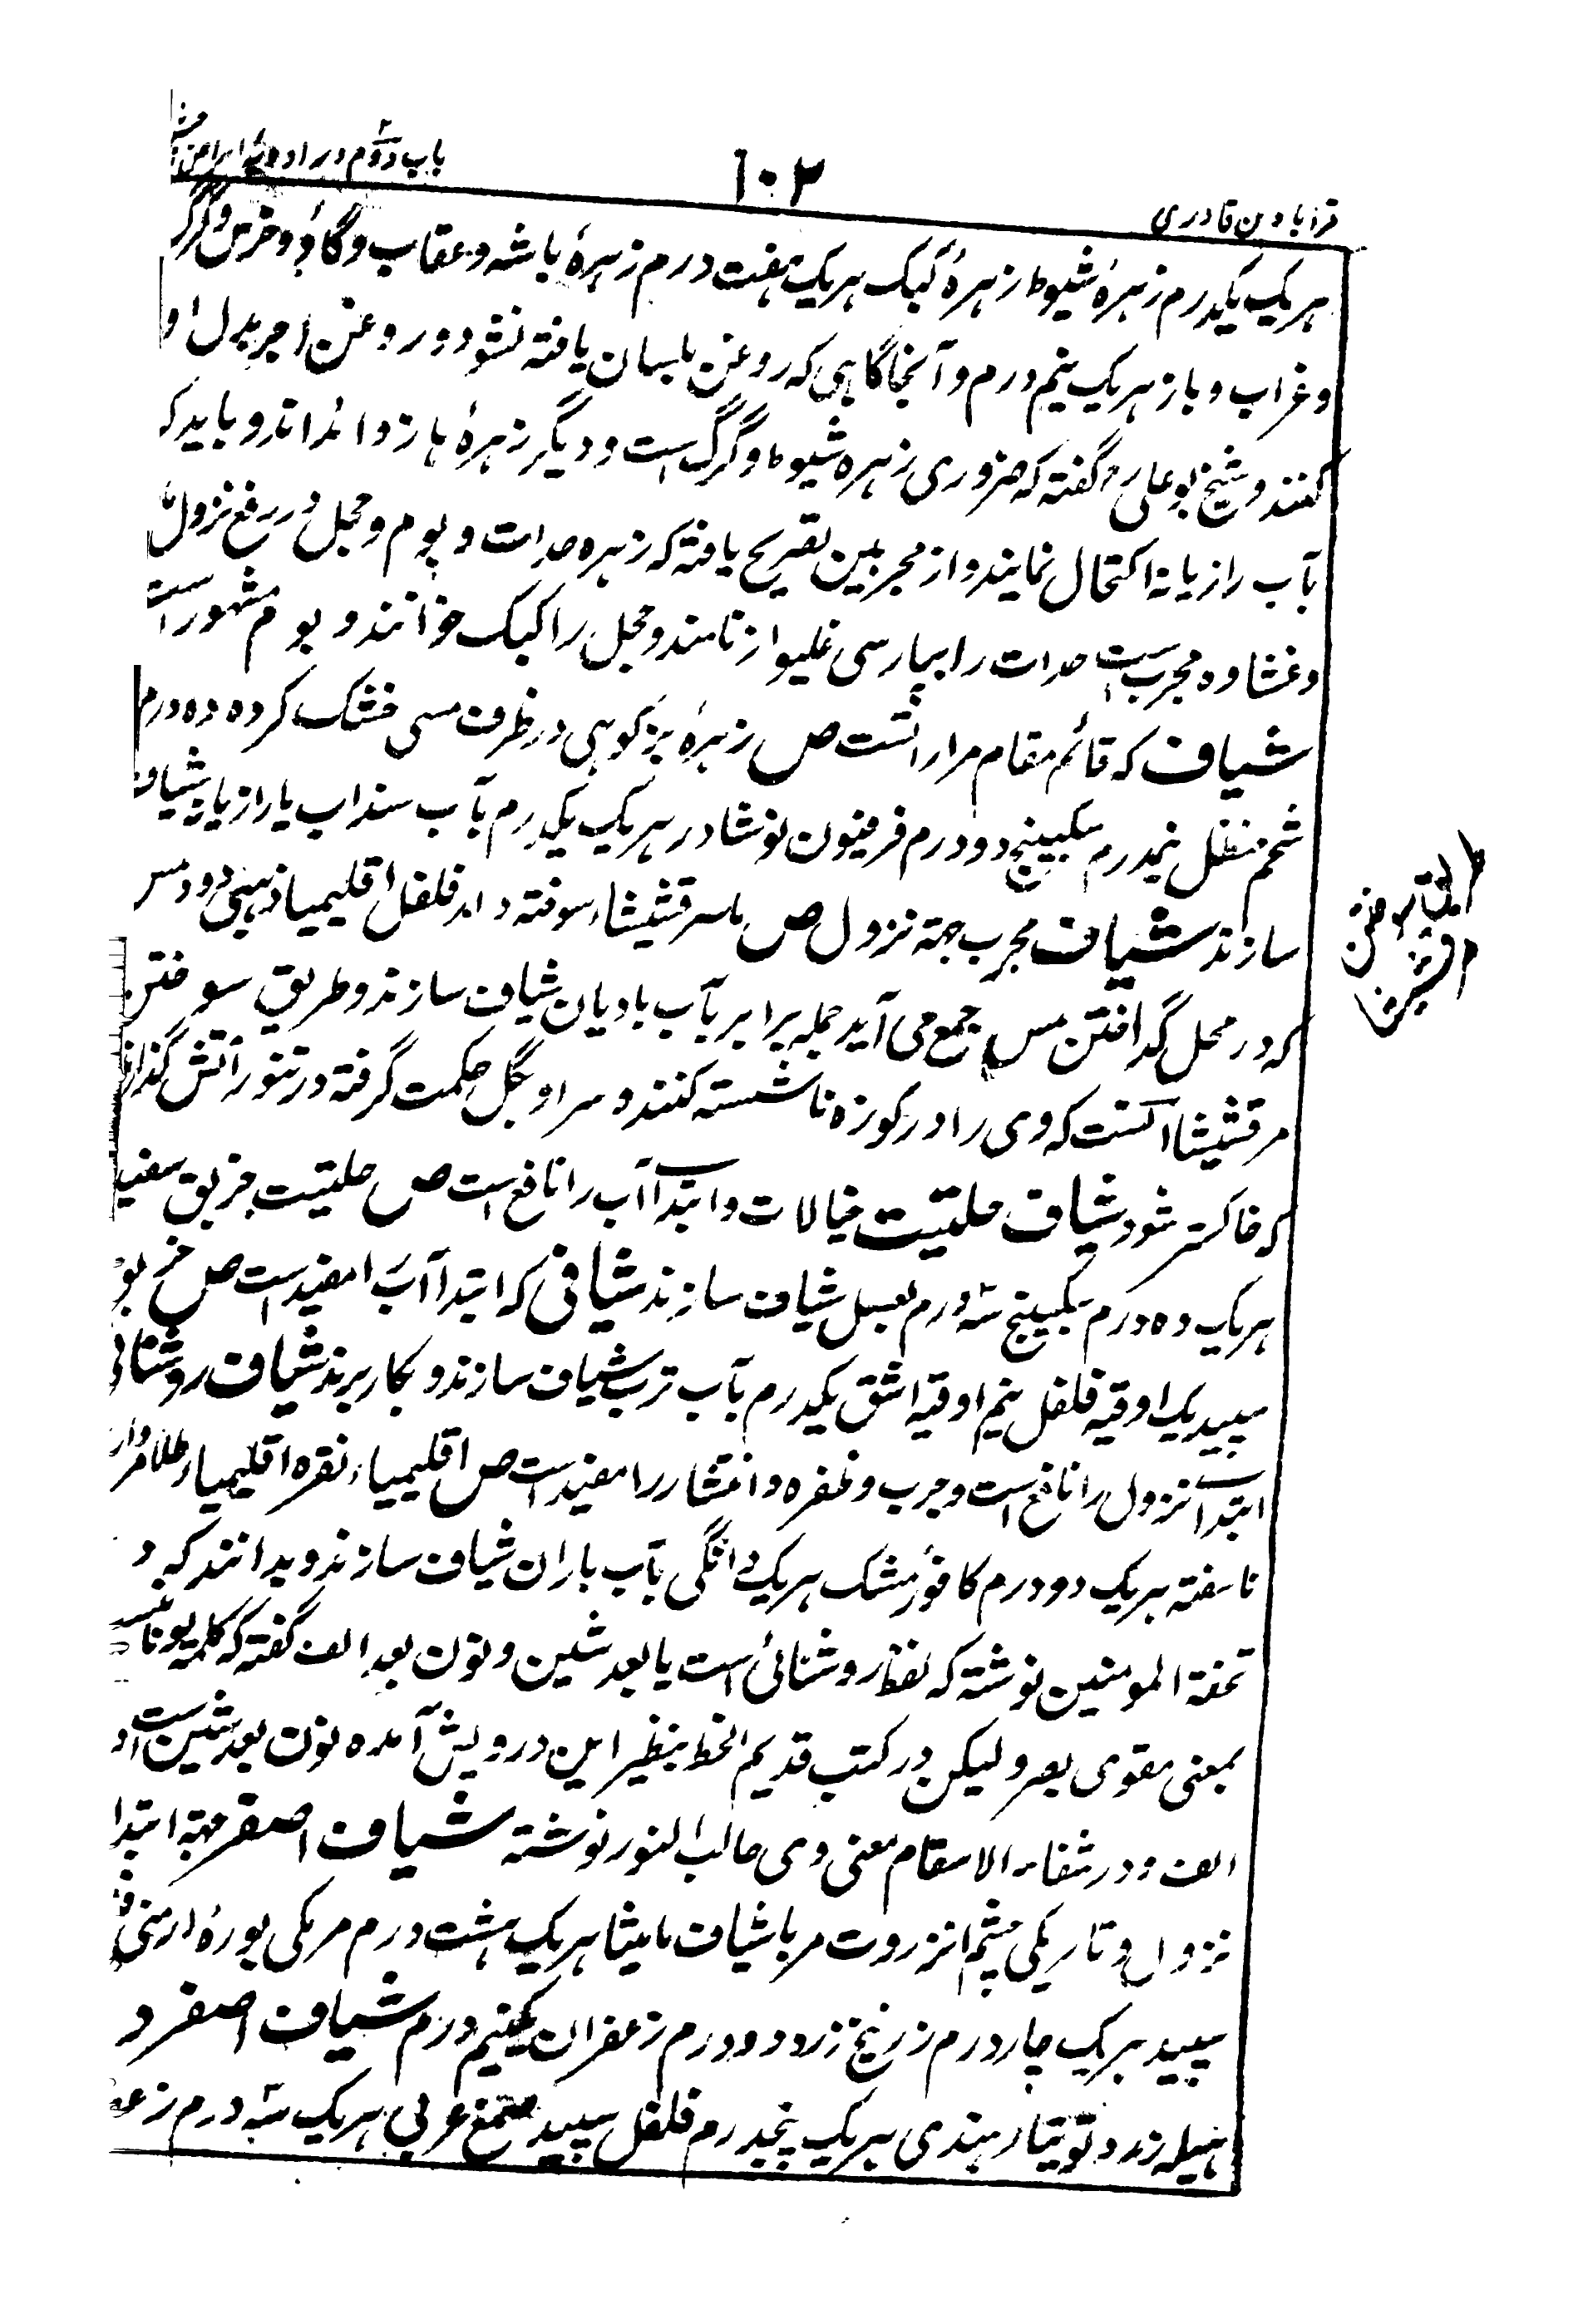 باب دوم در ادویه امراض
۱۰۳
قرابادین قادری
هریک یکدرم زهرهٔ شبوط زهرهٔ کبک هریک هفت درم زهرهٔ باشه و عقاب و گاؤ و خرس و گرگ
و غراب و باز هریک نیم درم و آنجا گاهی که روغن بلسان یافته نشود در روغن اجر بدل او
کنند و شیخ بوعلی گفته که ضروری زهره شبوط و گرگ است و دیگر زهرهٔ ها زوائد اند و باید که
بآب رازیانه اکتحال نمایند و از مجربین تصریح یافته که زهره حدات و بوم و حجل در رفع نزول
و غشاوه مجرب است حدات را بپارسی غلیواز نامند و حجل را کبک خوانند و بوم مشهور است
شیاف که قائم مقام مرارانست ص زهرهٔ بز کوهی در ظرف مسی خشک کرده ده درم
شحم حنظل نیمدرم سکبینج دو درم فرفیون نوشادر هریک یکدرم بآب سنداب یا رازیانه شیاف
سازند شیاف مجرب جهة نزول ص مارقشیشاء سوخته دار فلفل اقلیمیا ذهبی دود مس
که در محل گداختن مس جمع می آید جمله برابر بآب بادیان شیاف سازند و طریق سوختن
مرقشیشا آنست که وی را در کوزه ناشسته کنند و سر او بگل حکمت گرفته در تنور آتش گذارند
که خاکستر شود شیاف حلتیت خیالات و ابتدا آب را نافع است ص حلتیت خربق سفید
هریک ده درم سکبینج سه درم بعسل شیاف سازند شیافی که ابتدا آب را مفید است ص
سپید یک اوقیه فلفل نیم اوقیه اشق یکدرم بآب ترب شیاف سازند و بکار برند شیاف روشنائی
ابتدا نزول را نافع است و جرب و ظفره و انتشار را مفید است ص اقلیمیاء نقره اقلیمیاء طلا مروارید
ناسفته هریک دو درم کافور مشک هریک دانگی بآب باران شیاف سازند و بدانند که در
تحفة المومنین نوشته که لفظ روشنائی است یا بعد شین و نون بعد الف گفته که کلمه یونانیست
بمعنی مقوی بصر و لیکن در کتب قدیم الخط بنظر این درویش آمده نون بعد شین است و
الف و در شفاء الاسقام معنی وی جالب النور نوشته شیاف اصفر جهة ابتدا
نزول و تاریکی چشم انزروت مربا شیاف مامیثا هریک هشت درم مر مکی بورهٔ ارمنی
سپید هریک چار درم زرنیخ زرد دو درم زعفران یکنیم درم شیاف اصفر د
هلیله زرد توتیاء هندی هریک پنجدرم فلفل سپید صمغ عربی هریک سه درم